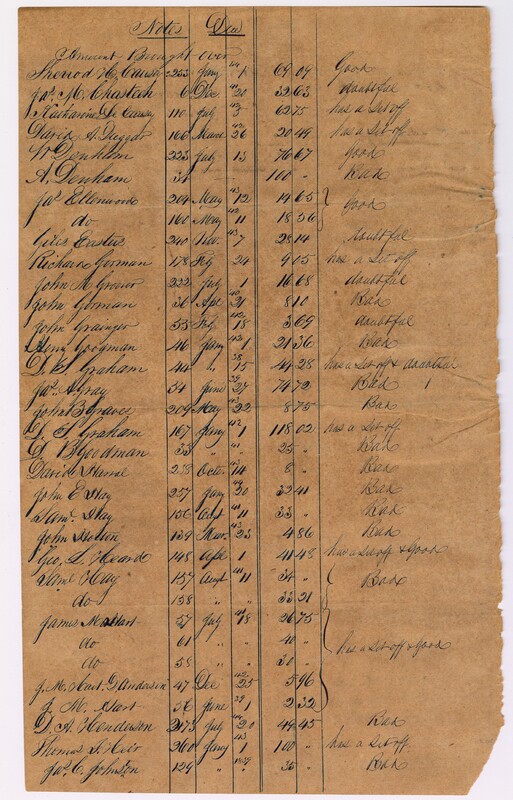 Notes Due
Amount Brought over
Sherrod H. Causey 223 Jany 1 69 09 Good
Jas. M. Chasteen 6 Dec 41 20 32 63 doubtful
Katharine De Causey 110 July 43 3 62 75 has a Set off
David A. Duggar 166 March 42 26 20 49 has a Set off
W Denham 223 July " 13 76 67 good
A. Denham 34 100 " Bad
Jas Ellenwood 204 May 43 12 14 65 good
do 160 May 43 11 18 56
Giles Easters 240 Nov. " 7 28 14 doubtful
Richard Gorman 178 Feb " 24 9 05 has a Set off
John M Greear 222 July " 1 16 68 doubtful
John Gorman 36 Apr 42 21 8 10 Bad
John Grainger 55 Feb " 18 3 69 doubtful
Henry Googman 46 Jany 42 1 21 36 Bad
D. S. Graham 44 " 38 15 44 28 has a Set off & doubtful
Jas. A Gray 54 June 39 27 74 72 Bad
John B Graves 209 May 43 22 8 75 Bad
D. S. Graham 167 Jany 42 1 118 02 has a Set off
G B Goodman 33 " 41 " 25 " Bad
David Harral 238 Octr. 43 14 8 " Bad
John E Hay 257 Jany 44 20 32 41 Bad
Saml. Hay 156 Oct 41 11 33 " Bad
John Holten 139 Mar. 43 23 4 86 Bad
Geo, L. Heard 148 Apl " 1 41 48 has a Set off & Good
Saml Hay 157 Augt 41 11 34 " Bad
do 158 " " 33 21
James M Hart 57 July 41 18 26 75 has a Set off & Good
do 61 " " 40 "
do 58 " " 30 "
J. M. Hart D Anderson 47 Dec 42 25 5 96
J. M. Hart 56 June 39 1 2 32
D. A. Henderson 273 July 44 20 49 45 Bad
Thomas S. Heir 260 Jany 43 1 100 " has a Set off
Jas. C. Johnson 129 " 1839 " 35 " Bad